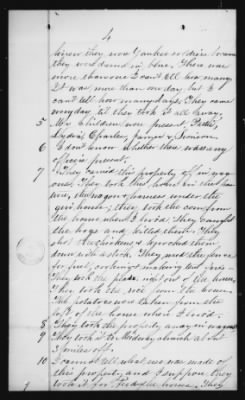 4
knew they were Yankee soldiers because
they were dressed in blue. There was
more than one I can't tell how many
It was more than one day, but I
can't tell how many days. They came
every day till they took it all away.
5 My children were present. Pattie,
Lydia, Charley, James & Simion.
6 I don't know whether there was any
officer present.
7 They carried this property off in wag
ons. They took the horses in the barn
the wagon & harness under the
gin house; they took the corn from
the house where I lived; They caught
the hogs and killed them. They
shot the chickens & knocked them
down with a stick. They used the fence
for fuel, cooking & making up fires.
They took the right out of the house.
They took the rice from the barn.
The potatoes were taken from the
left of the house where I lived.
8 They took the property away in wagons
9 They took it to Midway church about
3 miles off.
10 I cannot tell what use was made of
this property, and I suppose they
took it for the use. They